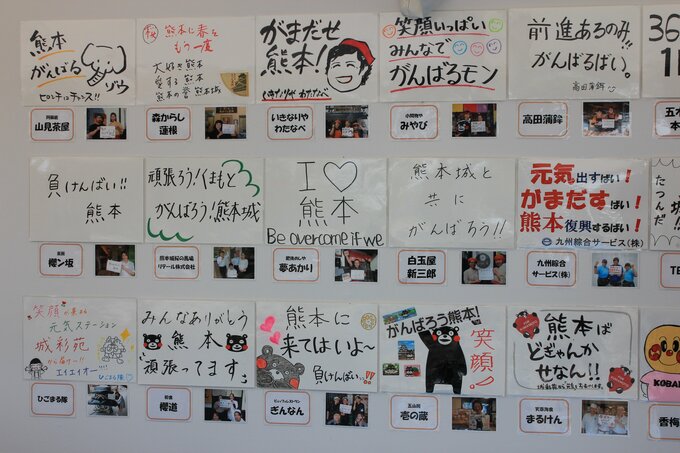 熊本
がんばる
ゾウ
ピンチにチャンス!!
熊本に春を
もう一度
大好き熊本
愛する熊本
熊本の誉熊本城
がまだせ
熊本!
いきなりや わたなべ
笑顔いっぱい
みんなで
がんばるモン
前進あるのみ!!
がんばるばい。
高田蒲鉾
36
山見茶屋
森からし
蓮根
いきなりや
わたなべ
みやび
高田蒲鉾
五木
本
負けんばい!!
熊本
頑張ろう!くまもと
がんばろう!熊本城
I♡
熊本
Be overcome if we
熊本城と
共に
がんばろう!!
元気出すばい!
がまだすばい!
熊本復興するばい!
九州綜合サービス(株)
たつんだ
櫻ン坂
熊本城桜の馬場
リテール株式会社
夢あかり
白玉屋
新三郎
九州綜合
サービス(株)
TE
笑顔が集まる
元気ステーション
城彩苑
から届けー!!
エイエイオー!
ひごまる隊
みんなありがとう
熊本
頑張ってます。
熊本に
来てはいよ〜
負けんばい!!
がんばろう熊本!
笑顔!
熊本ば
どぎゃんか
せなん!!
KOBA
ひごまる隊
櫻道
ぎんなん
壱の蔵
天草海食
まるけん
香梅